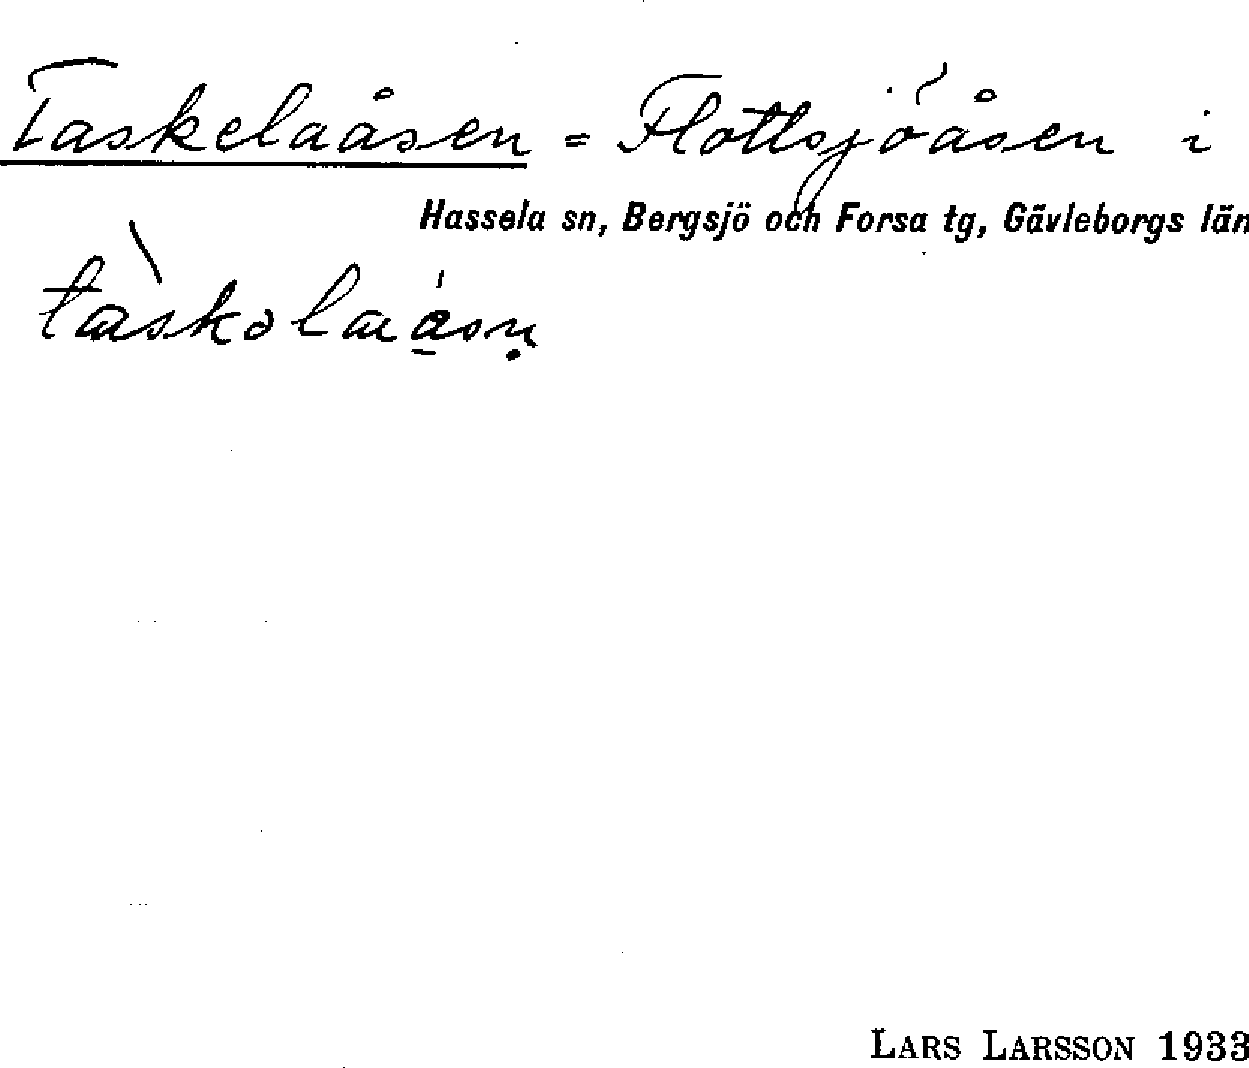 Taskelaåsen = Flottsjöåsen i
Hassela sn, Bergsjö och Forsa tg, Gävleborgs län
LARS LARSSON 1933